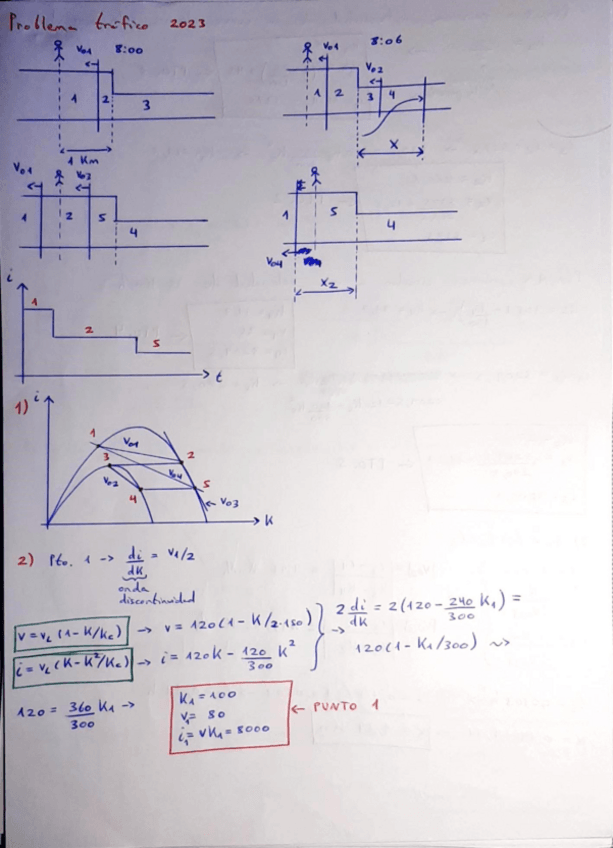 Problema tráfico 2023
V01 8:00
1 2 3
1 Km
V01 8:06
V02
1 2 3 4
X
V01 V03
1 2 5
4
1 5
4
V04
X2
i
1
2
5
t
1)
i
1 V01 2
3 V04
V02 4 5
V03
K
2) Pto. 1 -> di/dK = V1/2
onda
discontinuidad
V = VL (1 - K/Kc) -> V = 120 (1 - K/2·150)
i = VL (K - K²/Kc) -> i = 120K - 120/300 K²
2 di/dK = 2(120 - 240/300 K1) =
120(1 - K1/300) ~>
120 = 360/300 K1 ->
K1 = 100
V1 = 80
i1 = VK1 = 8000
<- PUNTO 1